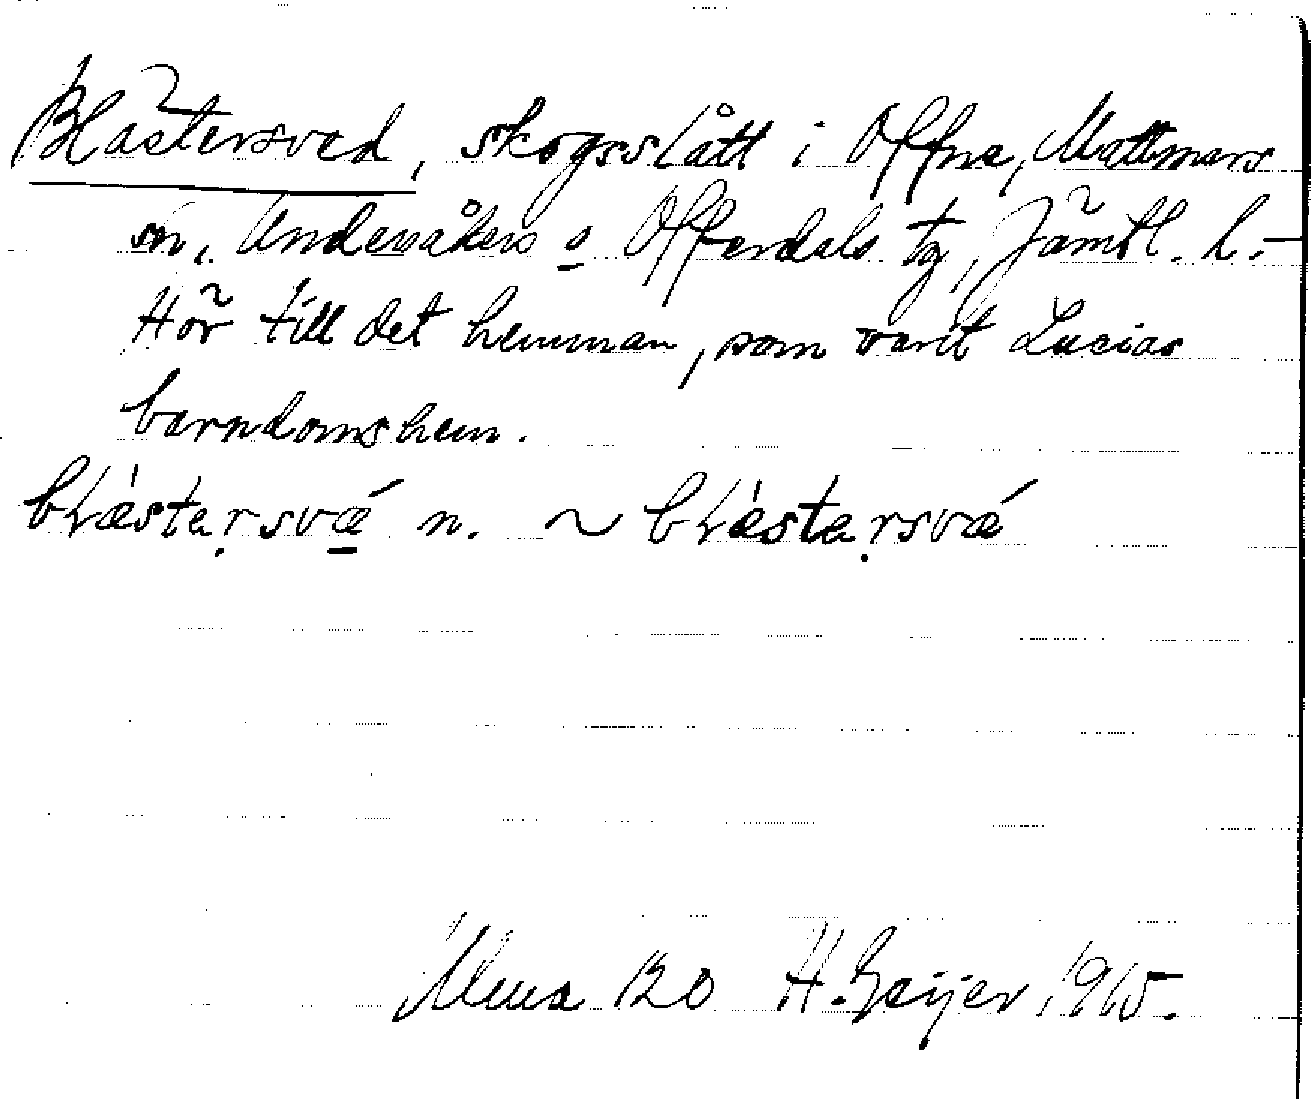 Blästersved, skogsslått i Offne, Mattmars
sn, Undersåkers o Offerdals tg, Jämtl. l. –
Hör till det hemman, som varit Lucias
barndomshem.
blæ̀stạrsvǽ n. ~ blæ̀stạrsvǽ
120 H. Geijer 1915.